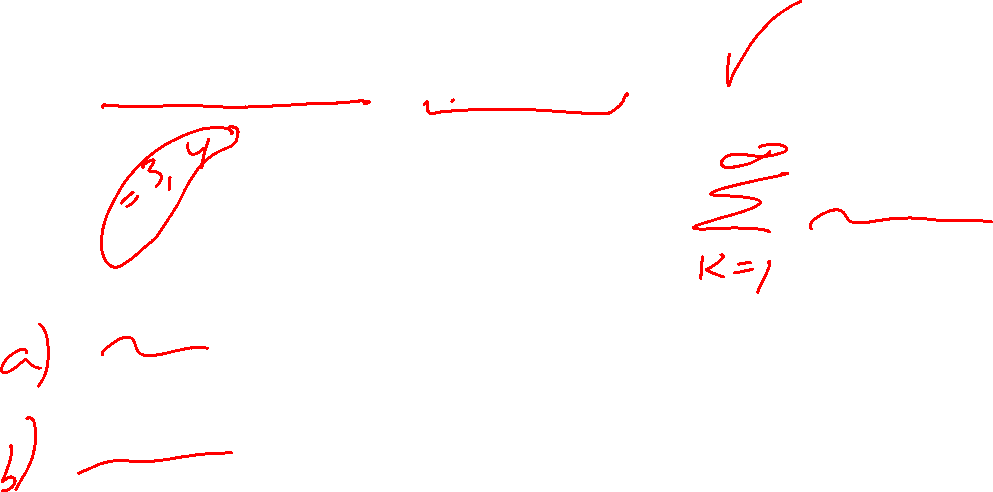 = 3, 4
∞
∑
K=1
a)
b)